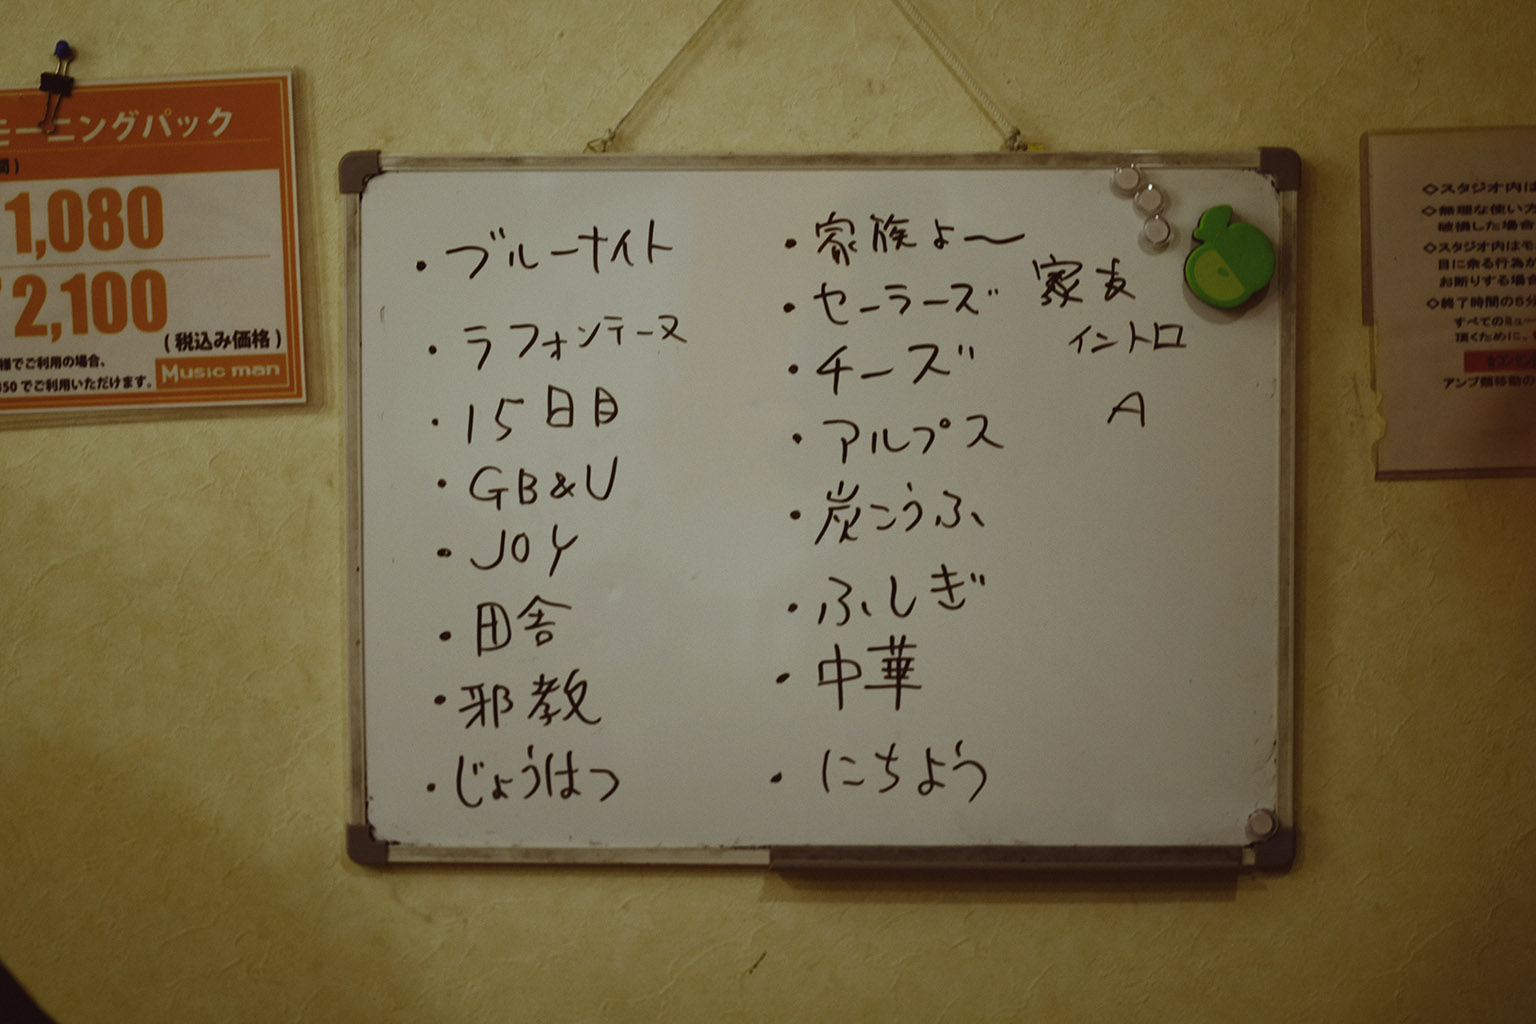 モーニングパック
間)
1,080
2,100
(税込み価格)
様でご利用の場合、
350でご利用いただけます。
Music man
・ブルーナイト
・ラフォンテーヌ
・15日目
・GB&U
・JOY
・田舎
・邪教
・じょうはつ
・家族よ〜
・セーラーズ
・チーズ
・アルプス
・炭こうふ
・ふしぎ
・中華
・にちよう
家友
イントロ
A
◇スタジオ内は
◇無理な使い方
破損した場合
◇スタジオ内はモ
目に余る行為が
お断りする場合
◇終了時間の5分
すべてのミュー
頂くために、
アンプ類移動の